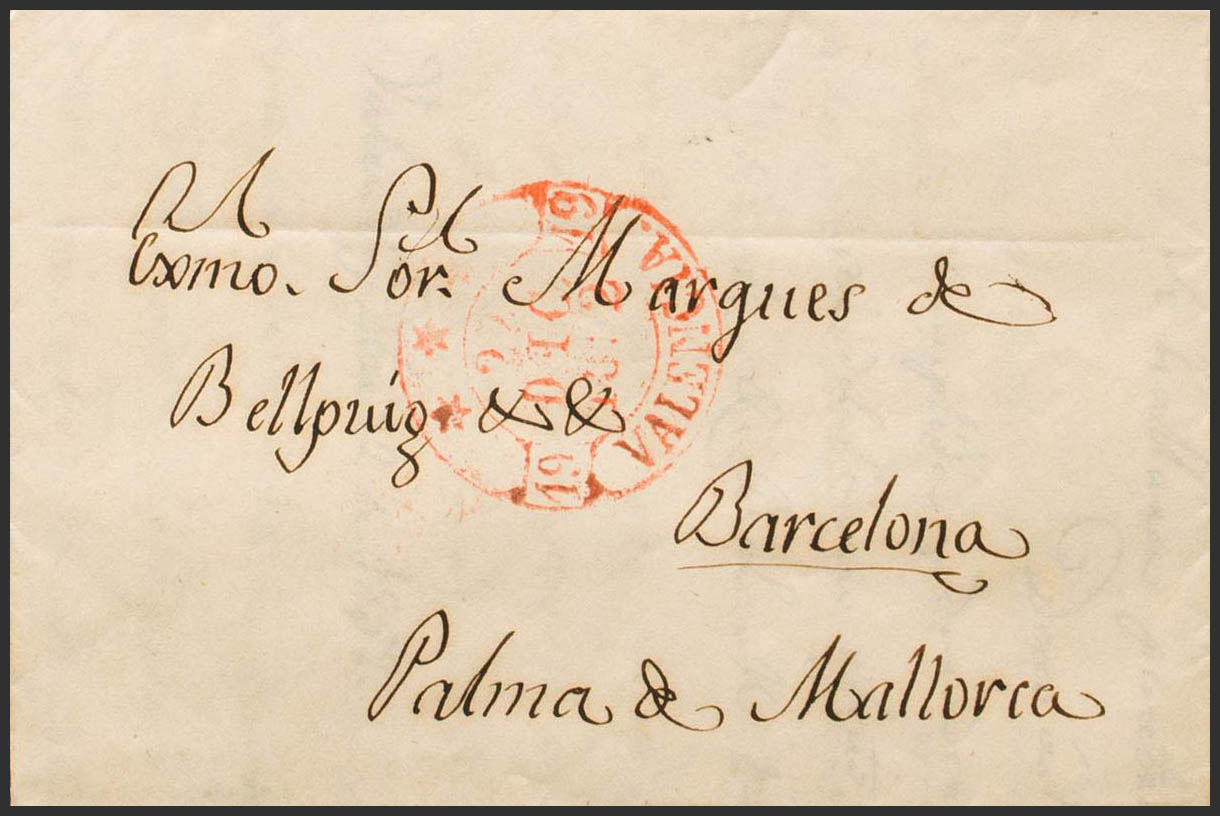 Al
Exmo. Sor. Marques de
Bellpuig && 
Barcelona
Palma de Mallorca
VALENCIA.
19
2
DIC
19